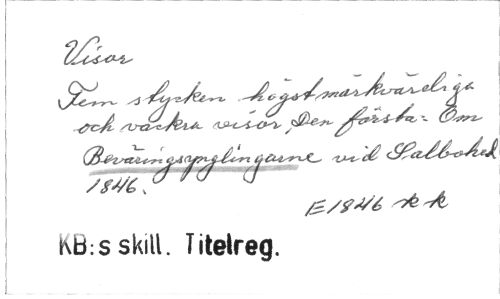 Visor
Fem stycken högst märkvärdiga
och vackra visor, Den första: Om
Beväringsynglingarne vid Salbohed
1846.
E 1846 kk
KB:s skill. Titelreg.